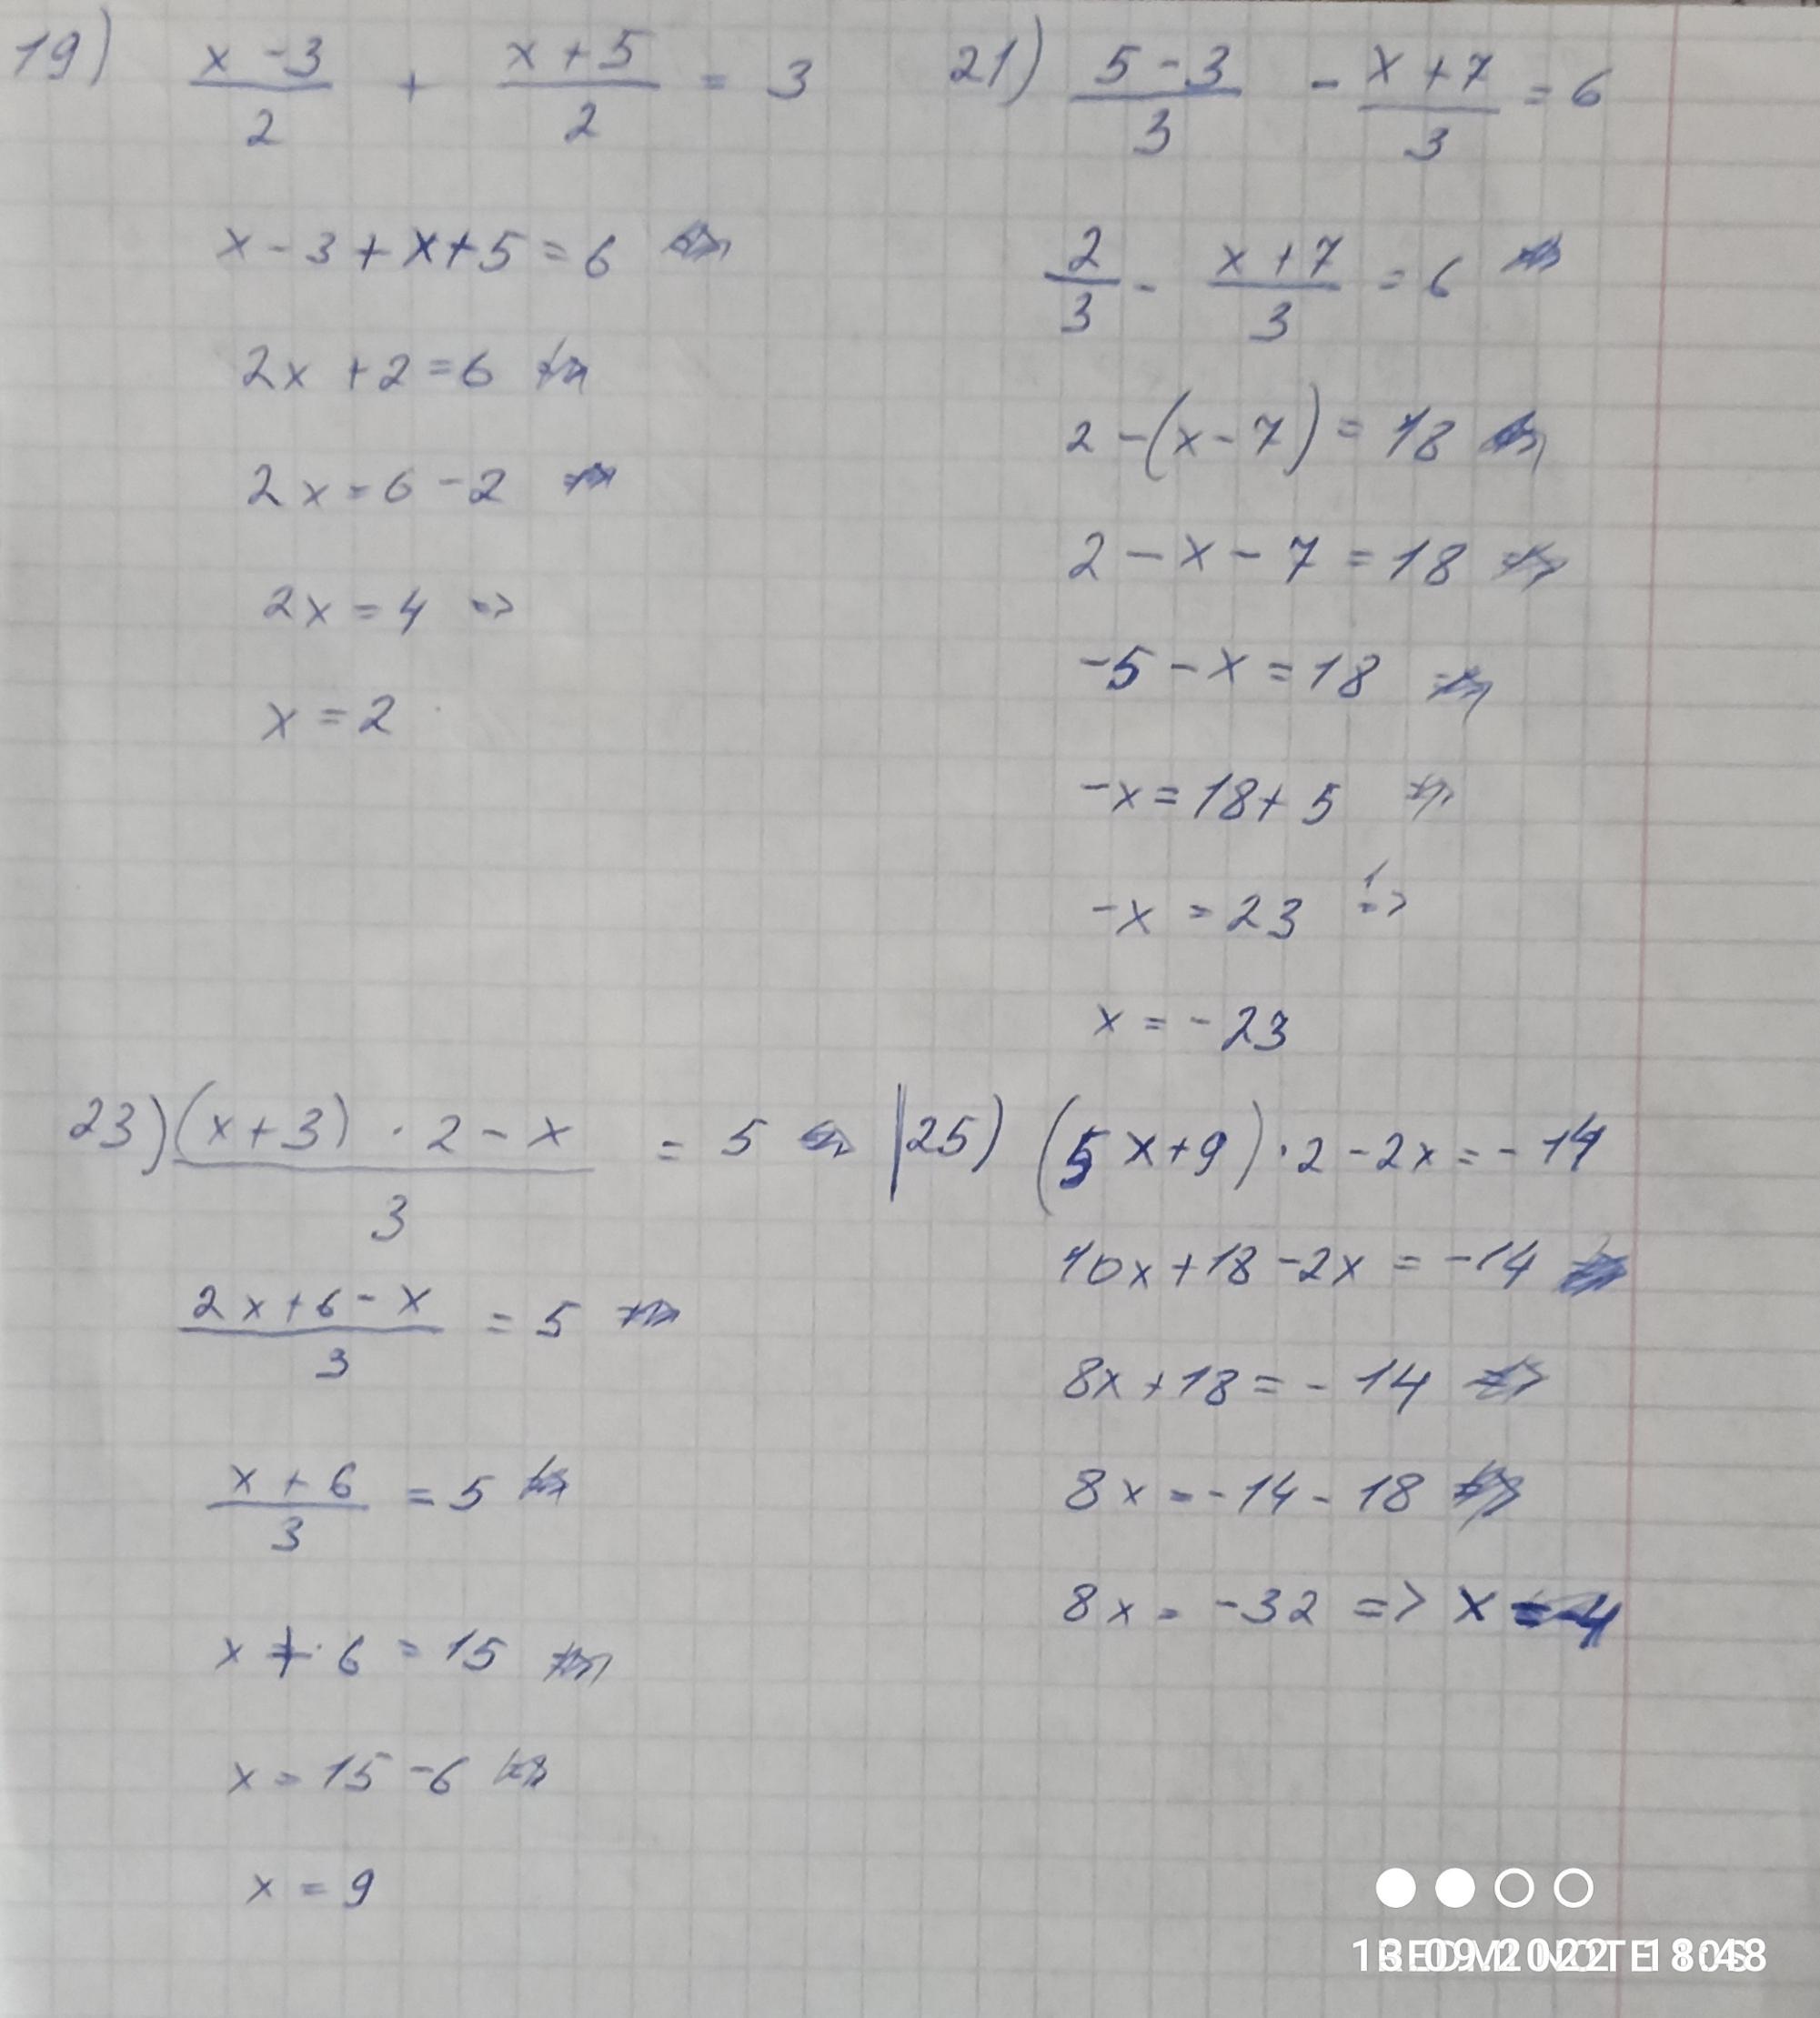 19) (x-3)/2 + (x+5)/2 = 3
x-3+x+5=6
2x+2=6
2x=6-2
2x=4 =>
x=2
21) (5-3)/3 - (x+7)/3 = 6
2/3 - (x+7)/3 = 6
2-(x-7)=18
2-x-7=18
-5-x=18
-x=18+5
-x=23 =>
x=-23
23) ((x+3)·2-x)/3 = 5
(2x+6-x)/3 = 5
(x+6)/3 = 5
x+6=15
x=15-6
x=9
25) (5x+9)·2-2x=-14
10x+18-2x=-14
8x+18=-14
8x=-14-18
8x=-32 => x=-4